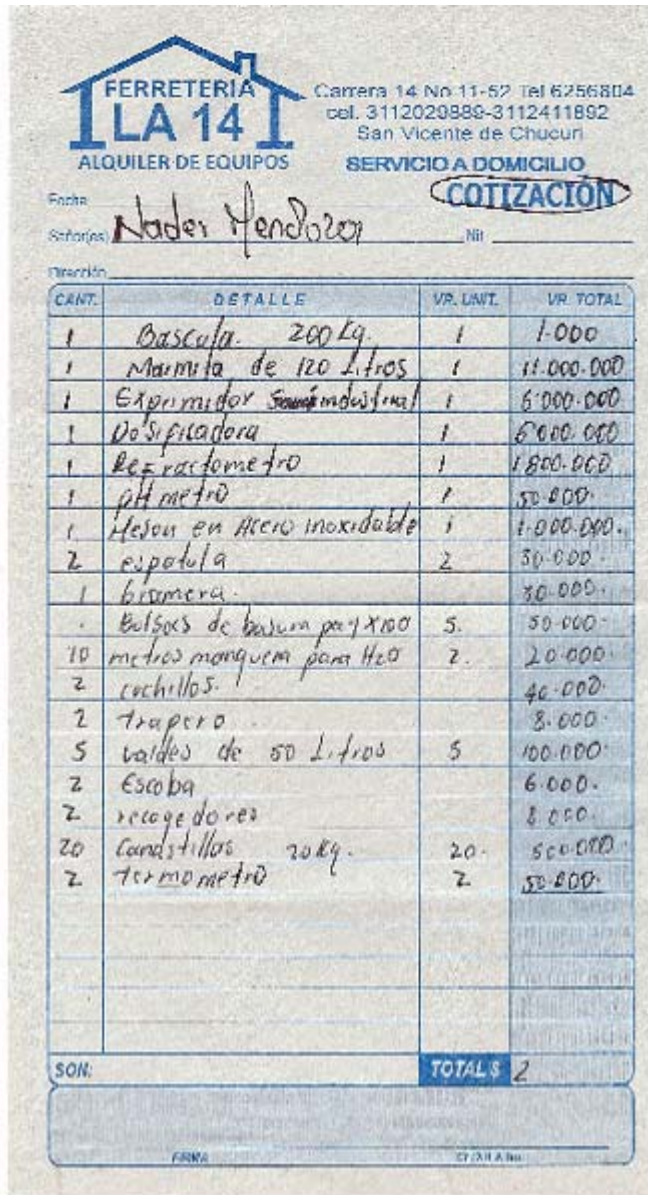 FERRETERIA
LA 14
ALQUILER DE EQUIPOS
Carrera 14 No 11-52 Tel 6256804
cel. 3112029889-3112411892
San Vicente de Chucuri
SERVICIO A DOMICILIO
COTIZACIÓN
Fecha
Señor(es) Nader Mendoza Nit
Dirección
CANT. DETALLE VR. UNIT. VR. TOTAL
1 Bascula. 200 Kg. 1 1.000
1 Marmita de 120 Litros 1 11.000.000
1 Exprimidor industrial 1 6.000.000
1 Dosificadora 1 6.000.000
1 Refractometro 1 1.800.000
1 pH metro 1 50.000.
1 Meson en Acero inoxidable 1 1.000.000.
2 espatula 2 30.000.
1 gramera. 30.000.
Bolsas de basura X100 5. 50.000.
10 metros manguera para H2O 2. 20.000.
2 cuchillos. 40.000.
2 trapero. 8.000.
5 valdes de 50 Litros 5 100.000.
2 Escoba 6.000.
2 recogedores 8.000.
20 Canastillas 20 Kg. 20. 500.000
2 termometro 2 50.000.
SON: TOTAL $ 2
FIRMA